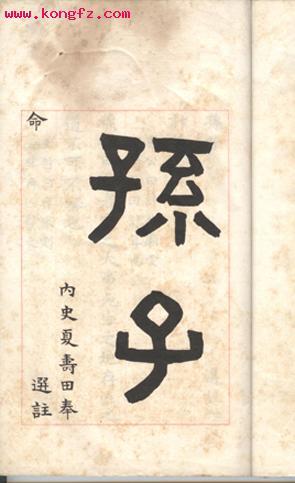 www.kongfz.com
孫子
內史夏壽田奉
命
選註